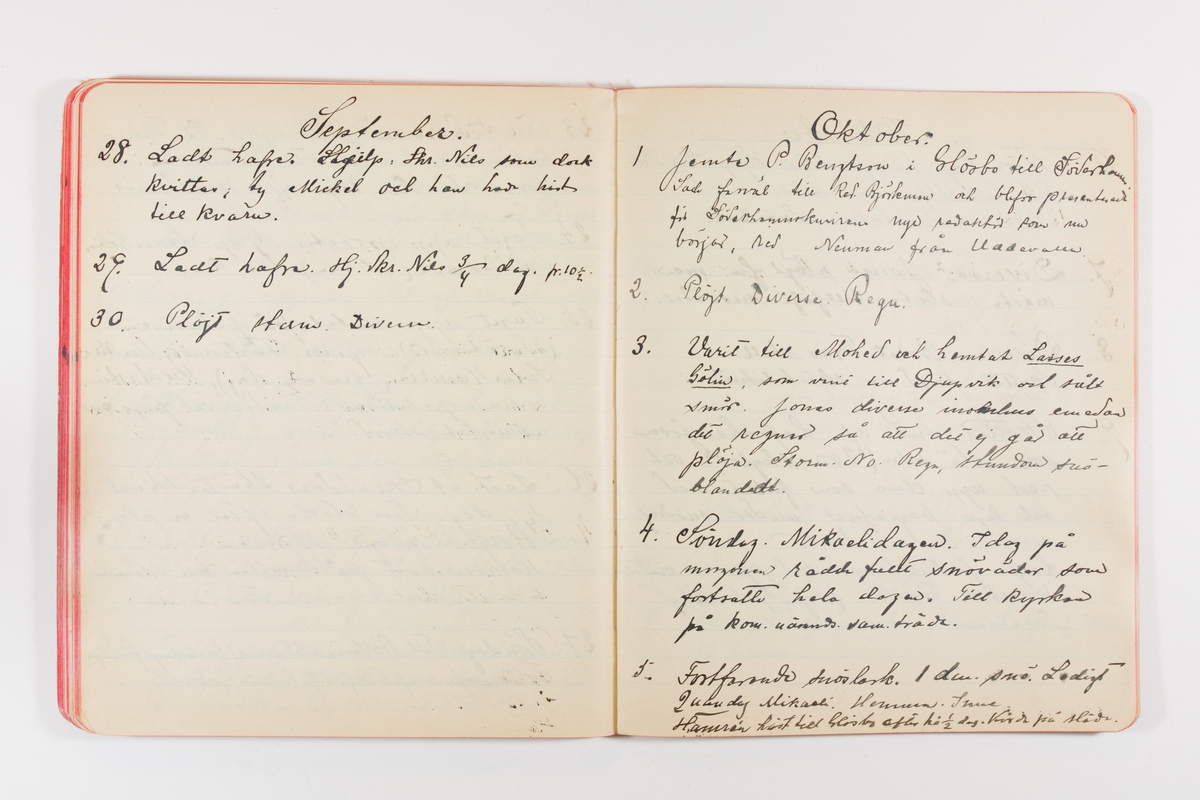 September.
28. Ladt hafre. Hjelp: Skr. Nils som dock
kvittas, ty Mickel och han hade häst
till kvarn.
29. Ladt hafre. Hj. Skr. Nils 3/4 dag. fr. 10 1/2.
30. Plöjt Diverse.
Oktober.
1 Jemte P. Bengtson i Glösbo till Söderhamn.
Sade farväl till Red. Björkman och blefvo presenterade
för Söderhamnskurirens nye redaktör som nu
börjar, Red Neuman från Uddevalla
2. Plöjt. Diverse. Regn.
3. Varit till Mohed och hemtat Lasses
Gölin, som varit till Djupvik och sålt
smör. Jonas diverse inomhus emedan
det regnar så att det ej går att
plöja. Storm. No. Regn, stundom snö-
blandadt.
4. Söndag. Mikaelidagen. Idag på
morgonen rådde fullt snöväder som
fortsatte hela dagen. Till kyrkan
på kom. nämnds. sam.träde.
5. Fortfarande snöslask. 1 dm. snö. Ledigt
Annandag Mikaeli. Hemma. Inne
Hamrén häst till Glösbo efter hö 1/2 dag. Körde på släde.